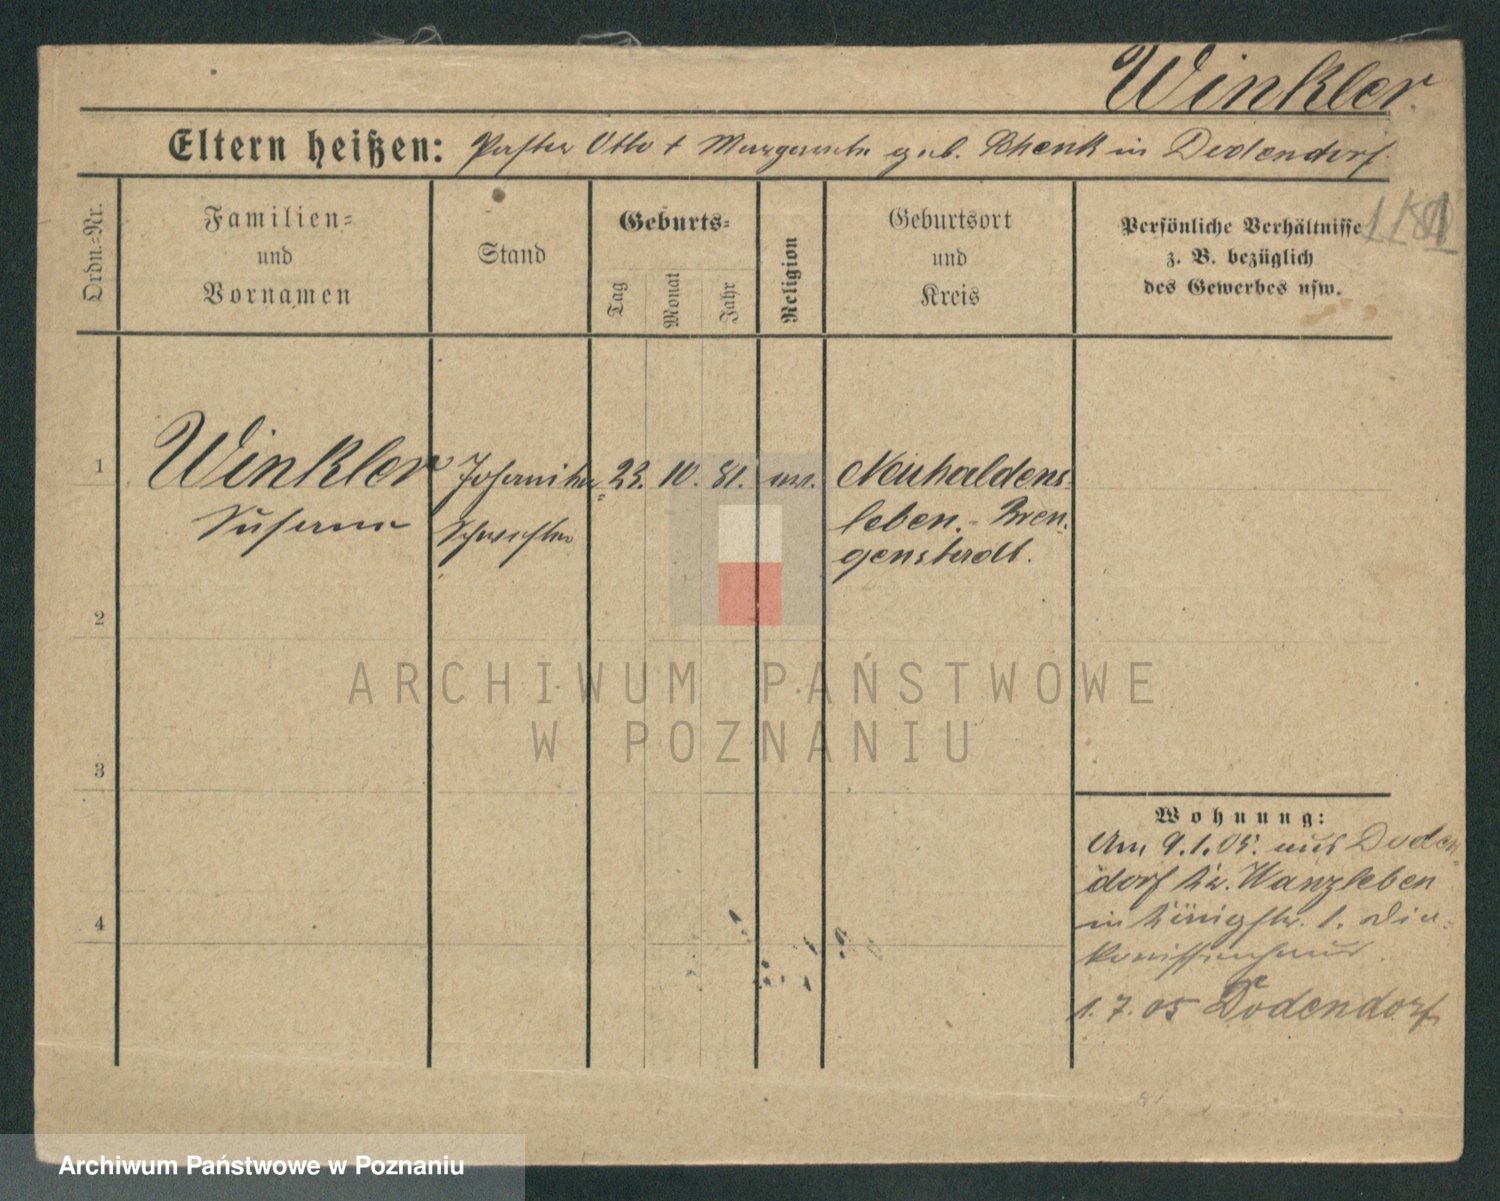 Winkler
Eltern heißen: Pastor Otto + Margarete geb. Schenk in Dodendorf.
1181
Ordn.=Nr.
Familien= und Vornamen
Stand
Geburts=
Tag
Monat
Jahr
Religion
Geburtsort und Kreis
Persönliche Verhältnisse z. B. bezüglich des Gewerbes usw.
1
Winkler
Johanniter=
23.
10.
81.
ev.
Neuhaldens=
Susanne
Schwester
leben.
genstadt.
2
3
4
Wohnung:
Am 9.1.05. aus Doden=
dorf Kr. Wanzleben
in Königstr. 1. Dia=
konissenhaus.
1.7.05 Dodendorf
ARCHIWUM PAŃSTWOWE
W POZNANIU
Archiwum Państwowe w Poznaniu